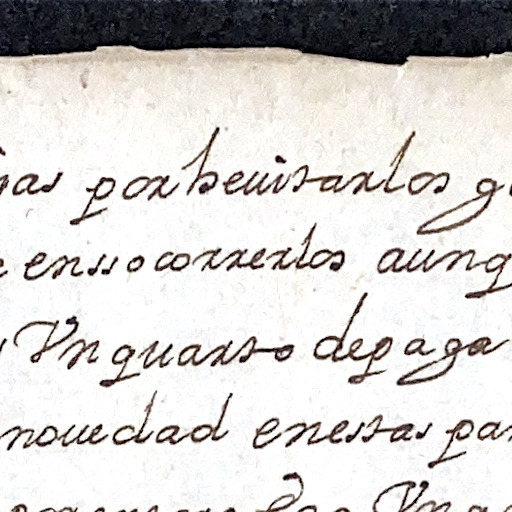 por heuitarlos
enssocorrerlos aunq
Vn quarto de paga
nouedad enestas par